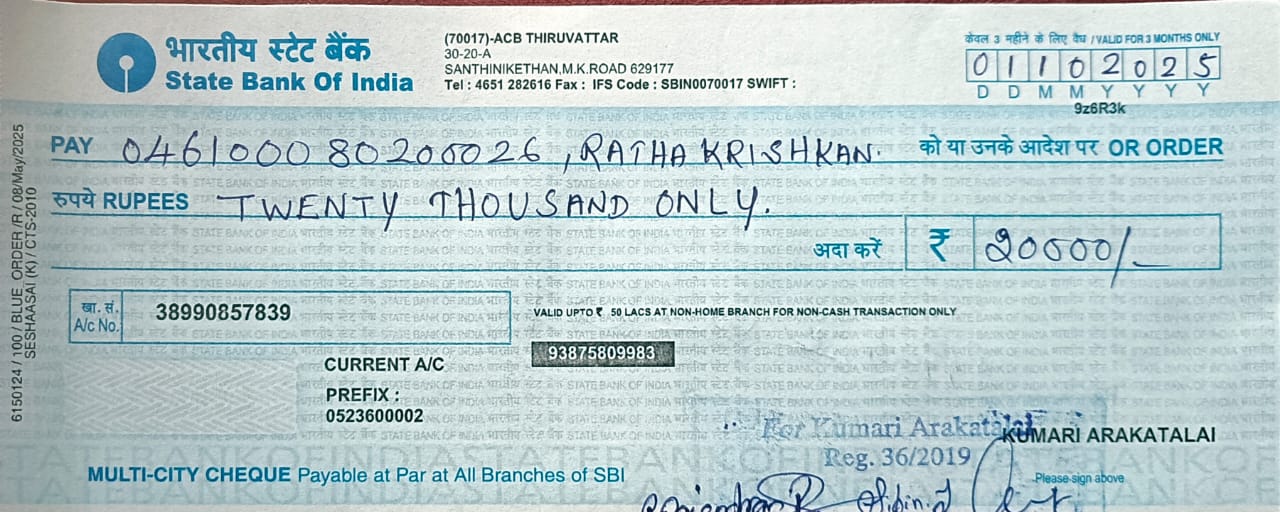 भारतीय स्टेट बैंक
State Bank Of India
(70017)-ACB THIRUVATTAR
30-20-A
SANTHINIKETHAN,M.K.ROAD 629177
Tel : 4651 282616 Fax : IFS Code : SBIN0070017 SWIFT :
केवल 3 महीने के लिए वैध / VALID FOR 3 MONTHS ONLY
01102025
D D M M Y Y Y Y
9z6R3k
PAY 046100080200026, RATHA KRISHKAN. को या उनके आदेश पर OR ORDER
रुपये RUPEES TWENTY THOUSAND ONLY.
अदा करें ₹ 20000/-
खा. सं. A/c No. 38990857839
VALID UPTO ₹ 50 LACS AT NON-HOME BRANCH FOR NON-CASH TRANSACTION ONLY
93875809983
CURRENT A/C
PREFIX :
0523600002
For Kumari Arakatalai
KUMARI ARAKATALAI
Reg. 36/2019
Please sign above
MULTI-CITY CHEQUE Payable at Par at All Branches of SBI
6150124 / 100 / BLUE_ORDER / R / 08/May/2025
SESHAASAI (K) / CTS-2010